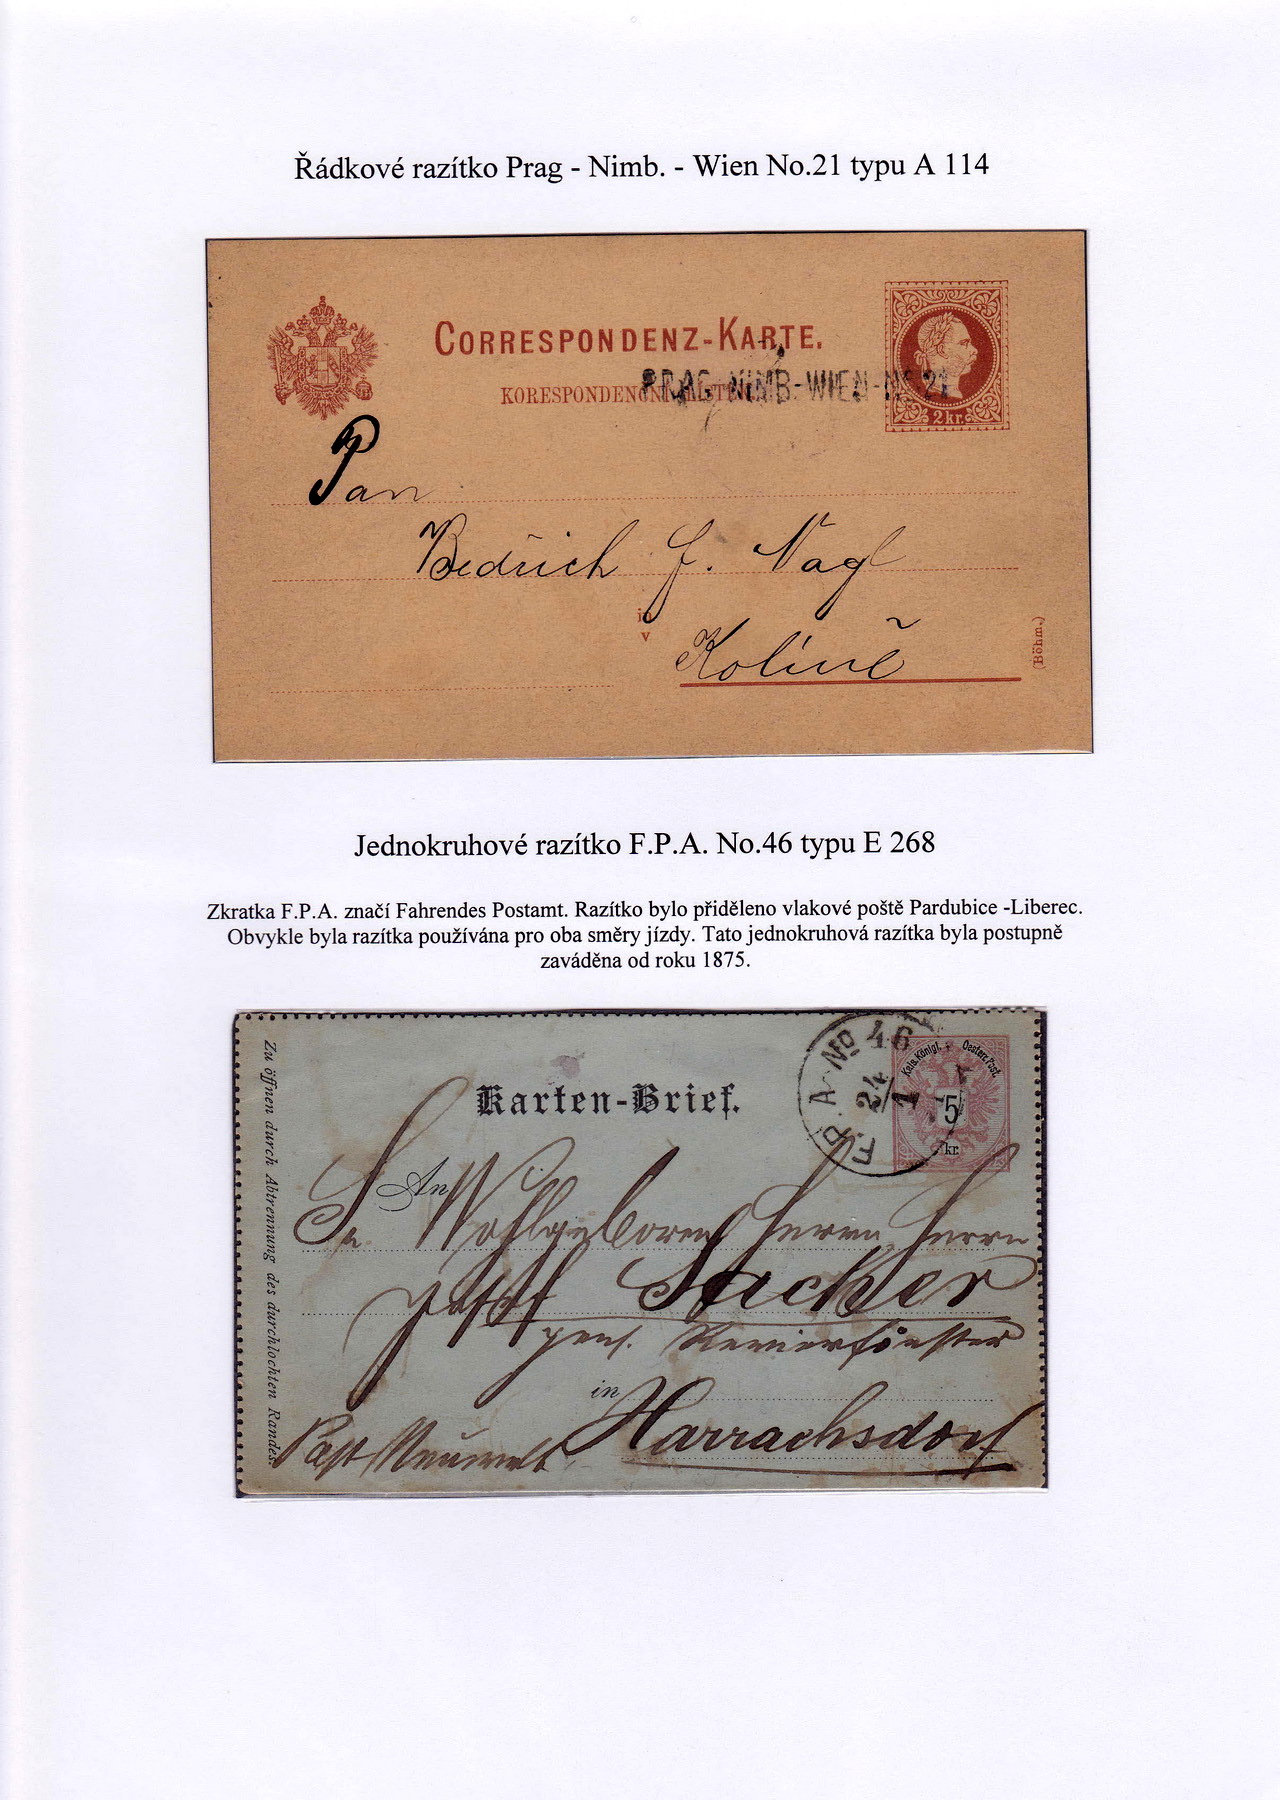 Řádkové razítko Prag - Nimb. - Wien No.21 typu A 114
CORRESPONDENZ-KARTE.
KORESPONDENČNÍ LÍSTEK
PRAG-NIMB-WIEN-No 21
2 kr.
Pan
Bedřich J. Nagl
in
v
Kolíně
(Böhm.)
Jednokruhové razítko F.P.A. No.46 typu E 268
Zkratka F.P.A. značí Fahrendes Postamt. Razítko bylo přiděleno vlakové poště Pardubice -Liberec.
Obvykle byla razítka používána pro oba směry jízdy. Tato jednokruhová razítka byla postupně
zaváděna od roku 1875.
Zu öffnen durch Abtrennung des durchlochten Randes.
Karten-Brief.
F.P.A. No 46
24
1
Kais. Königl. Oesterr. Post.
5
kr.
An
Sr. Wohlgeboren Herrn Herrn
Josef Sacher
pens. Revierförster
in Harrachsdorf
Post Neuwelt